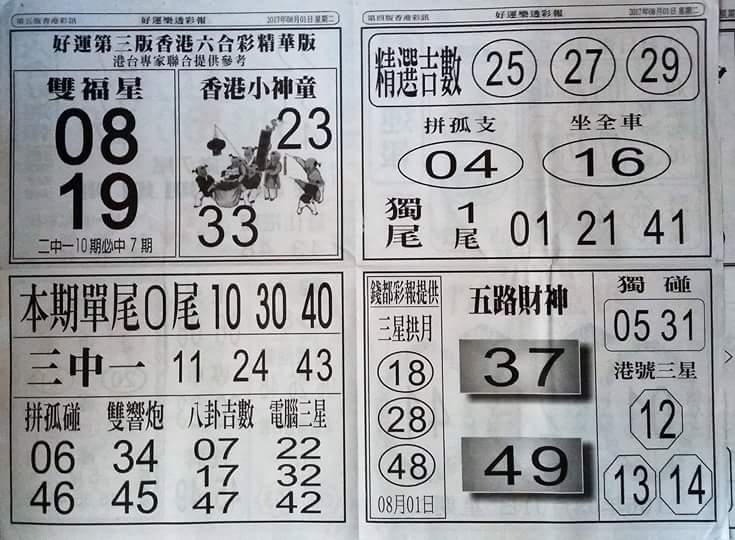 第五版香港彩訊 好運樂透彩報 2017年08月01日 星期二
好運第三版香港六合彩精華版
港台專家聯合提供參考
雙福星
08
19
二中一10期必中7期
香港小神童
23
33
第四版香港彩訊 好運樂透彩報 2017年08月01日 星期二
精選吉數 25 27 29
拼孤支 坐全車
04 16
獨尾 1尾 01 21 41
本期單尾0尾 10 30 40
三中一 11 24 43
拼孤碰 雙響炮 八卦吉數 電腦三星
06 34 07 22
17 32
46 45 47 42
錢都彩報提供
三星拱月
18
28
48
08月01日
五路財神
37
49
獨碰
05 31
港號三星
12
13 14